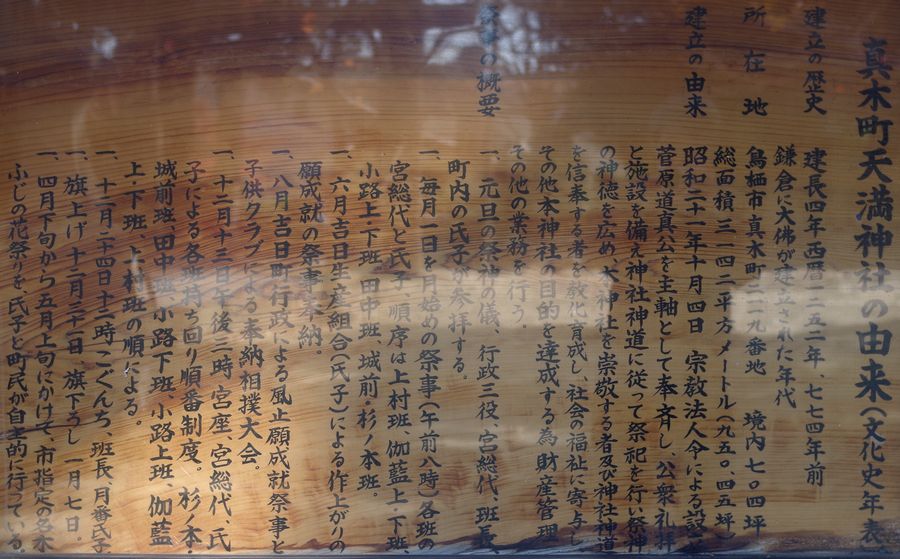 真木町天満神社の由来(文化史年表)
建立の歴史 建長四年西暦一二五二年、七七四年前
鎌倉に大佛が建立された年代
所在地 鳥栖市真木町 二一九番地 境内七〇四坪
総面積三一四二平方メートル(九五〇、四五坪)
建立の由来 昭和二十一年十月四日 宗教法人令による設立
菅原道真公を主軸として奉斉し、公衆礼拝
と施設を備え神社神道に従って祭祀を行い祭神
の神徳を広め、本神社を崇敬する者及び神社神道
を信奉する者を教化育成し、社会の福祉に寄与し
その他本神社の目的を達成する為、財産管理
その他の業務を行う。
祭事の概要 一、元旦の祭神の儀、行政三役、宮総代、班長、
町内の氏子が参拝する。
一、毎月一日を月始めの祭事(午前八時)各班の
宮総代と氏子、順序は上村班、伽藍上・下班、
小路上・下班、田中班、城前杉ノ本班。
一、六月吉日生産組合(氏子)による作上がりの
願成就の祭事奉納。
一、八月吉日町行政による風止願成就祭事と
子供クラブによる奉納相撲大会。
一、十二月十三日午後三時、宮座、宮総代、氏
子による各班持ち回り順番制度。杉ノ本・
城前班、田中班、小路下班、小路上班、伽藍
上・下班、上村班の順による。
一、十二月二十四日十三時こくんち、班長月番氏子
一、旗上げ十二月二十日、旗下ろし一月七日。
一、四月下旬から五月上旬にかけて、市指定の名木
ふじの花祭りを氏子と町民が自主的に行っている。